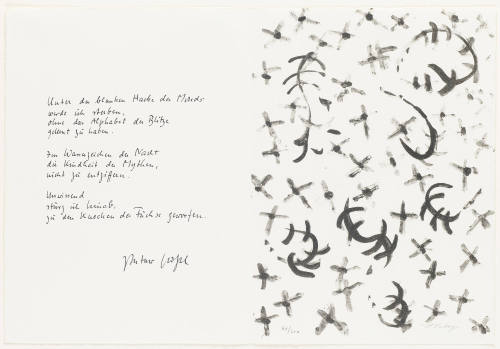 Unter der blanken Hacke des Monds
werde ich sterben,
ohne das Alphabet der Blitze
gelernt zu haben.
Im Wasserzeichen der Nacht
die Kindheit der Mythen,
nicht zu entziffern.
Unwissend
stürz ich hinab,
zu den Knochen der Füchse geworfen.
Peter Huchel